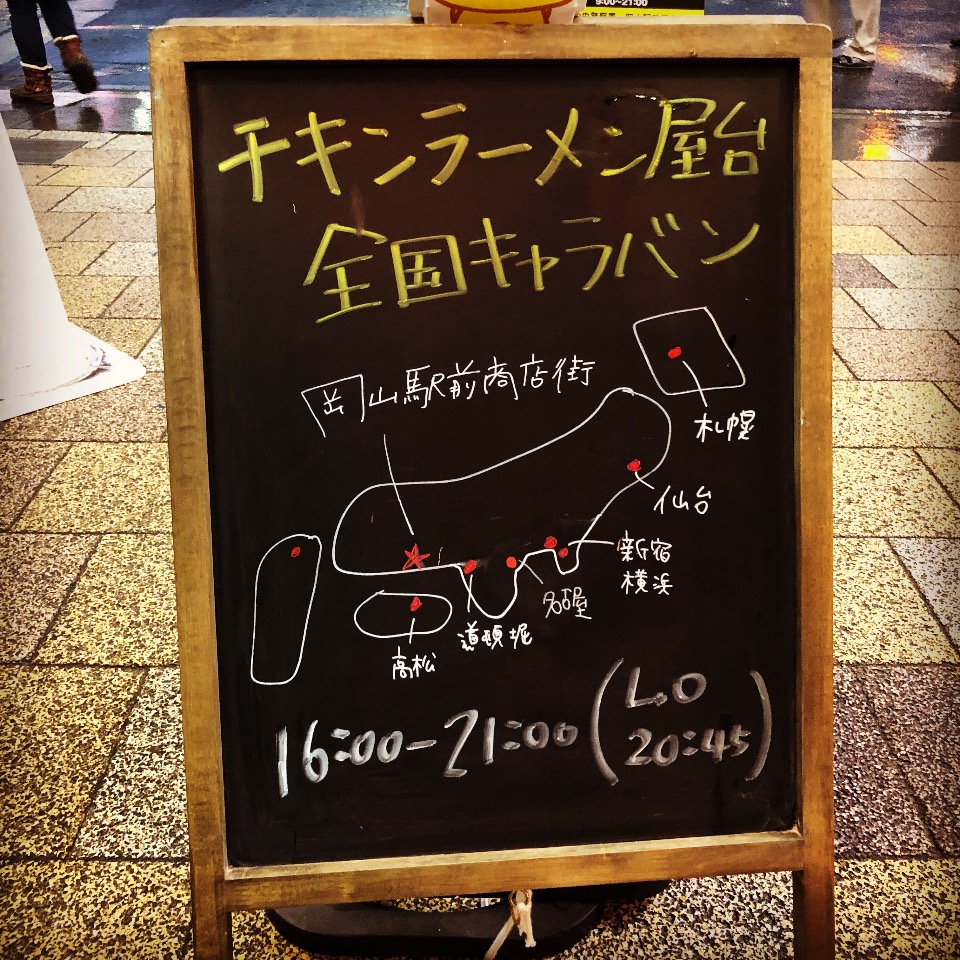 9:00~21:00
チキンラーメン屋台
全国キャラバン
岡山駅前商店街
札幌
仙台
新宿
横浜
名古屋
道頓堀
高松
16:00-21:00
(L.O
20:45)